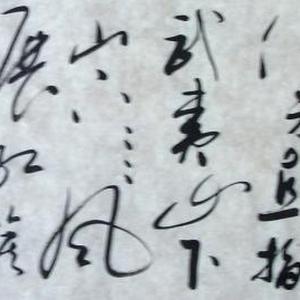 方直指
武夷山下
山下〻〻风
展红旗